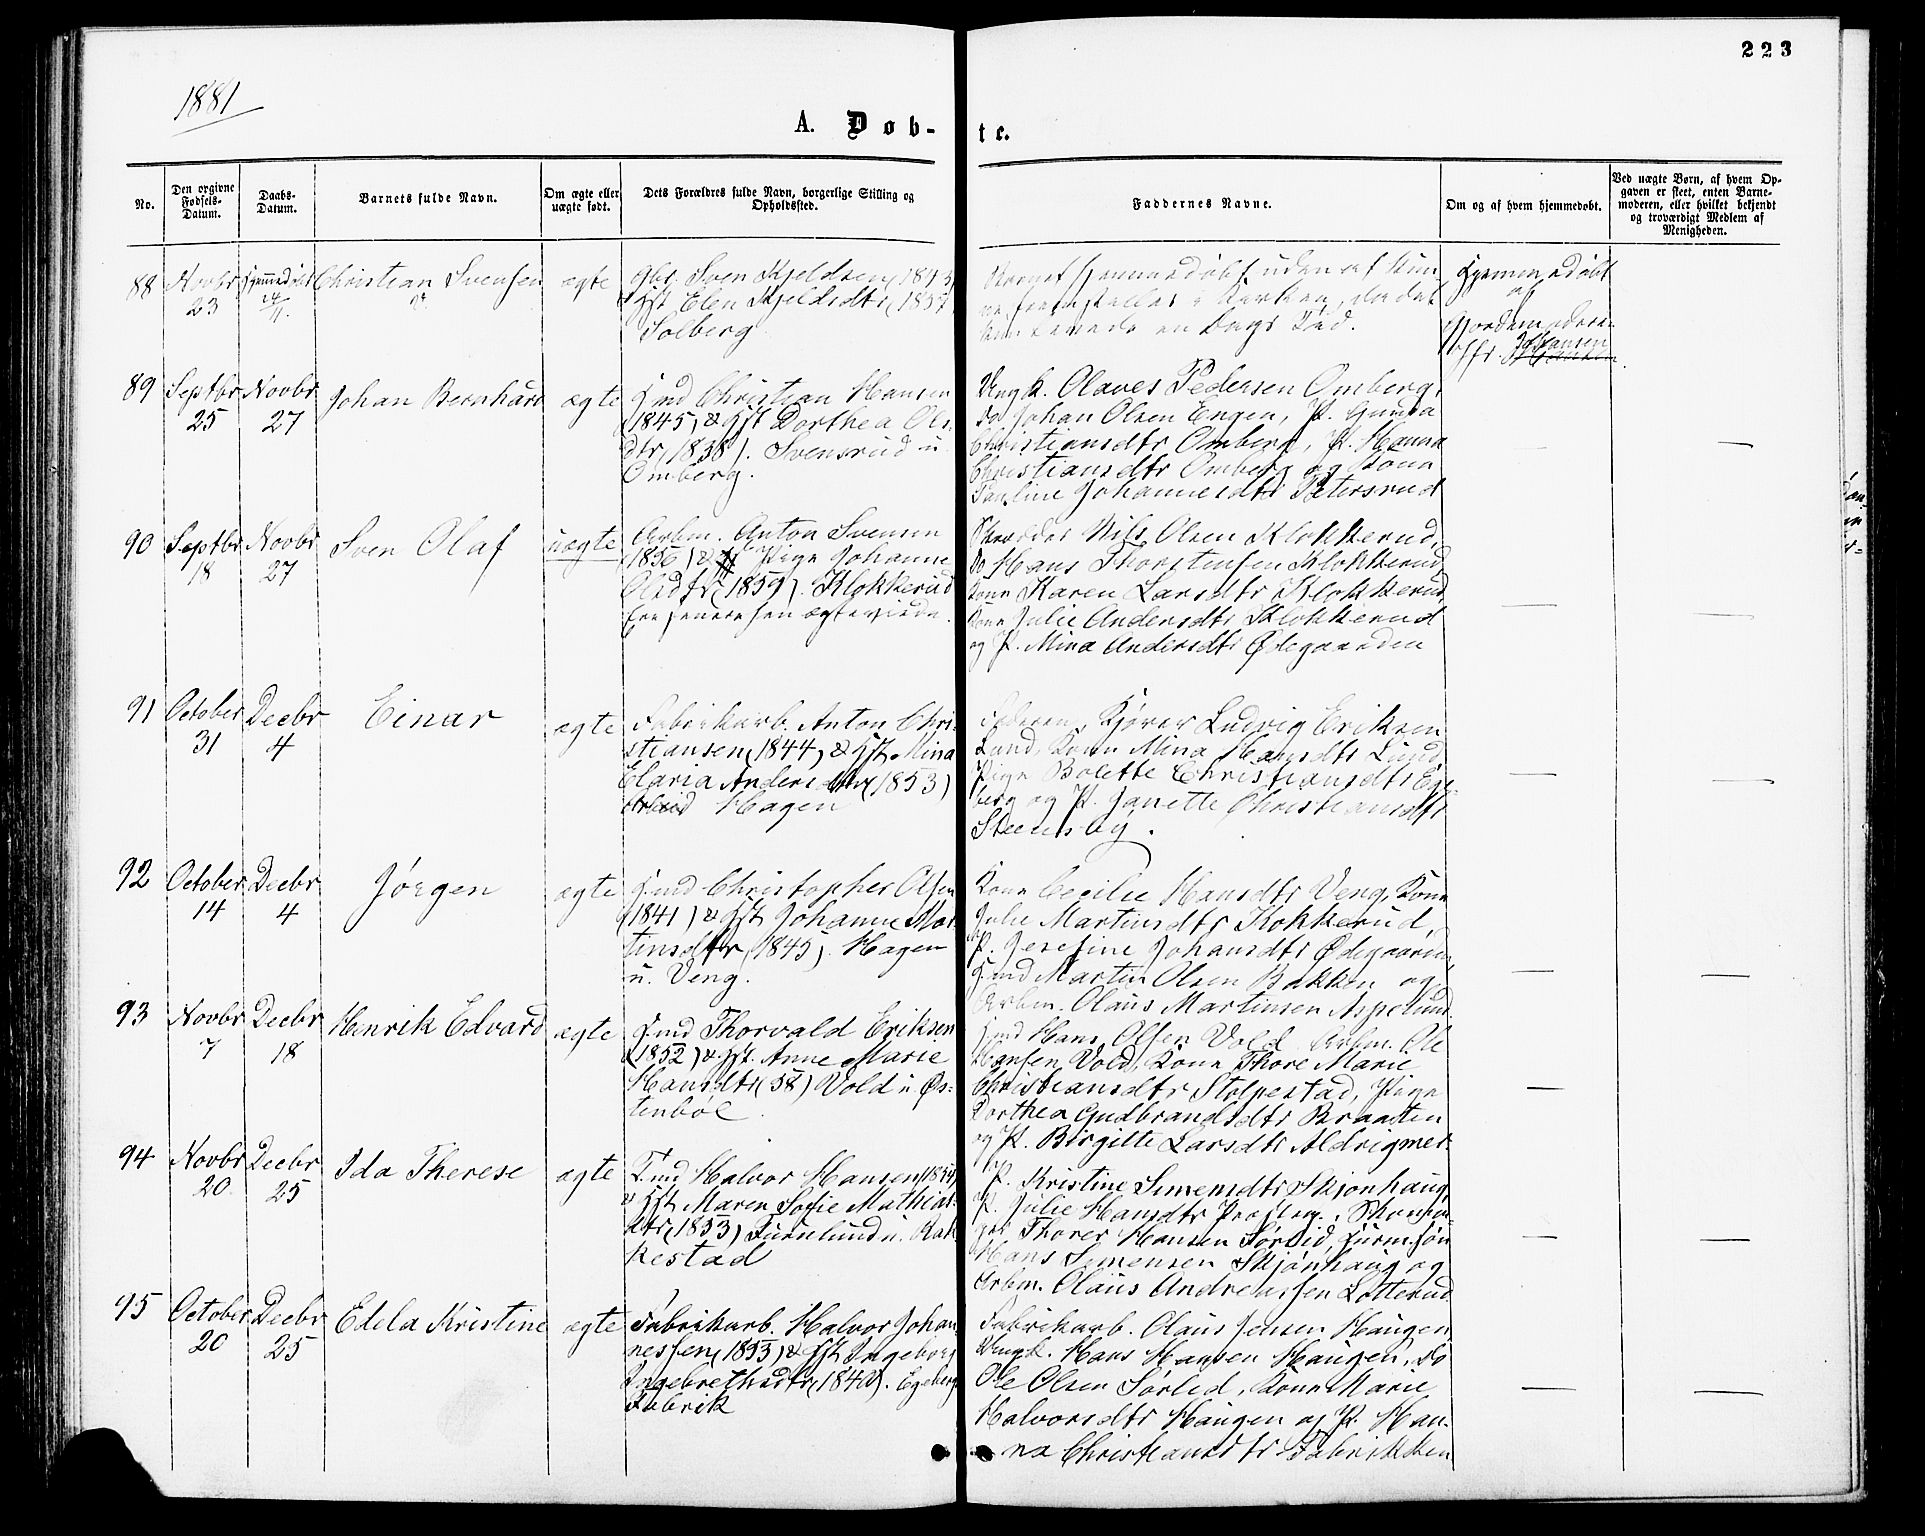 223
1881
A. Døb-
te.
No.
Den opgivne Fødsels-Datum.
Daabs-Datum.
Barnets fulde Navn.
Om ægte eller uægte født.
Dets Forældres fulde Navn, borgerlige Stilling og Opholdssted.
Faddernes Navne.
Om og af hvem hjemmedøbt.
Ved uægte Børn, af hvem Op-
gaven er skeet, enten Barne-
moderen, eller hvilket bekjendt
og troværdigt Medlem af
Menigheden.
88 Novbr 23
Hjemmedøbt 24/11
Christian Svensen
ægte
Gbr. Sven Kjeldsen (1843)
& Hst Elen Kjeldsdtr (1857)
Solberg
Barnet hjemmedøbt uden at kun
ne fremstilles i Kirken, da det
kun levede en Dags Tid.
Hjemmedøbt
af
Gjordemoderen
Johansen
89 Septbr 25
Novbr 27
Johan Bernhard
ægte
Hmd Christian Hansen
(1845) & Hst Dorthea Ols
dtr (1838). Svensrud u
Omberg.
Ungk. Olaves Pedersen Omberg,
do Johan Olsen Engen, P. Gunda
Christiansdtr Omberg, P. Hanna
Christiansdtr Omberg og Kone
Pauline Johannesdtr Petersrud
90 Septbr 18
Novbr 27
Sven Olaf
uægte
Arbm. Anton Svensen
(1850) & Pige Johanne
Olsdtr (1859). Klokkerud
Ere senere hen ægteviede.
Skrædder Nils Olsen Klokkerud,
Do Hans Thorstensen Klokkerud,
Kone Karen Larsdtr Klokkerud,
Kone Julie Andersdtr Klokkerud
og P. Mina Andersdtr Ødegaarden
91 October 31
Decbr 4
Einar
ægte
Fabrikarb. Anton Chri-
stiansen (1844) & Hst Mina
Maria Andersdtr (1853)
Hagen
Faderen, Kjører Ludvig Eriksen
Lund, Kone Mina Hansdtr Lund
Pige Bolette Christiansdtr Ege-
berg og P. Janette Christiansdtr
Steensby.
92 October 14
Decbr 4
Jørgen
ægte
Hmd Christopher Olsen
(1841) & Hst Johanne Mar-
tinsdtr (1845). Hagen
u. Veng.
Kone Cecilie Hansdtr Veng, Kone
Julie Martinsdtr Klokkerud,
P. Josefine Johansdtr Ødegaarden,
Hmd Martin Olsen Bakken og
Arbm. Olaus Martinsen Aspelund
93 Novbr 7
Decbr 18
Henrik Edvard
ægte
Hmd Thorvald Eriksen
(1852) & Hst. Anne Marie
Hansdtr (58) Vold u Øs-
tenböl
Hmd Hans Olsen Vold Arbm. Ole
Hansen Vold, Kone Thore Marie
Christiansdtr Stolpestad, Pige
Dorthea Gudbrandsdtr Braaten
og P. Birgitte Larsdtr Aldrigmer
94 Novbr 20
Decbr 25
Ida Therese
ægte
Hmd Halvor Hansen (1854)
& Hst Maren Sofie Mathias-
dtr (1853) Furulund u. Rak
kestad
P. Kristine Simensdtr Skjønhaug,
P. Julie Hansdtr
Thorer Hansen Sørlid, Gurmsøn
Hans Simensen Skjønhaug og
Arbm. Olaus Andreassen Lotterud
95 October 20
Decbr 25
Edela Kristine
ægte
Fabrikarb. Halvor Johan-
nessen (1853) & Hst Ingeborg
Ingebrethsdtr (1848). Egeberg
Fabrik
Fabrikarb. Olaus Jensen Haugen,
Ungk. Hans Hansen Haugen, do
Ole Olsen Sørlid, Kone Marie
Halvorsdtr Haugen og P. Han-
na Christiansdtr Fabrikken